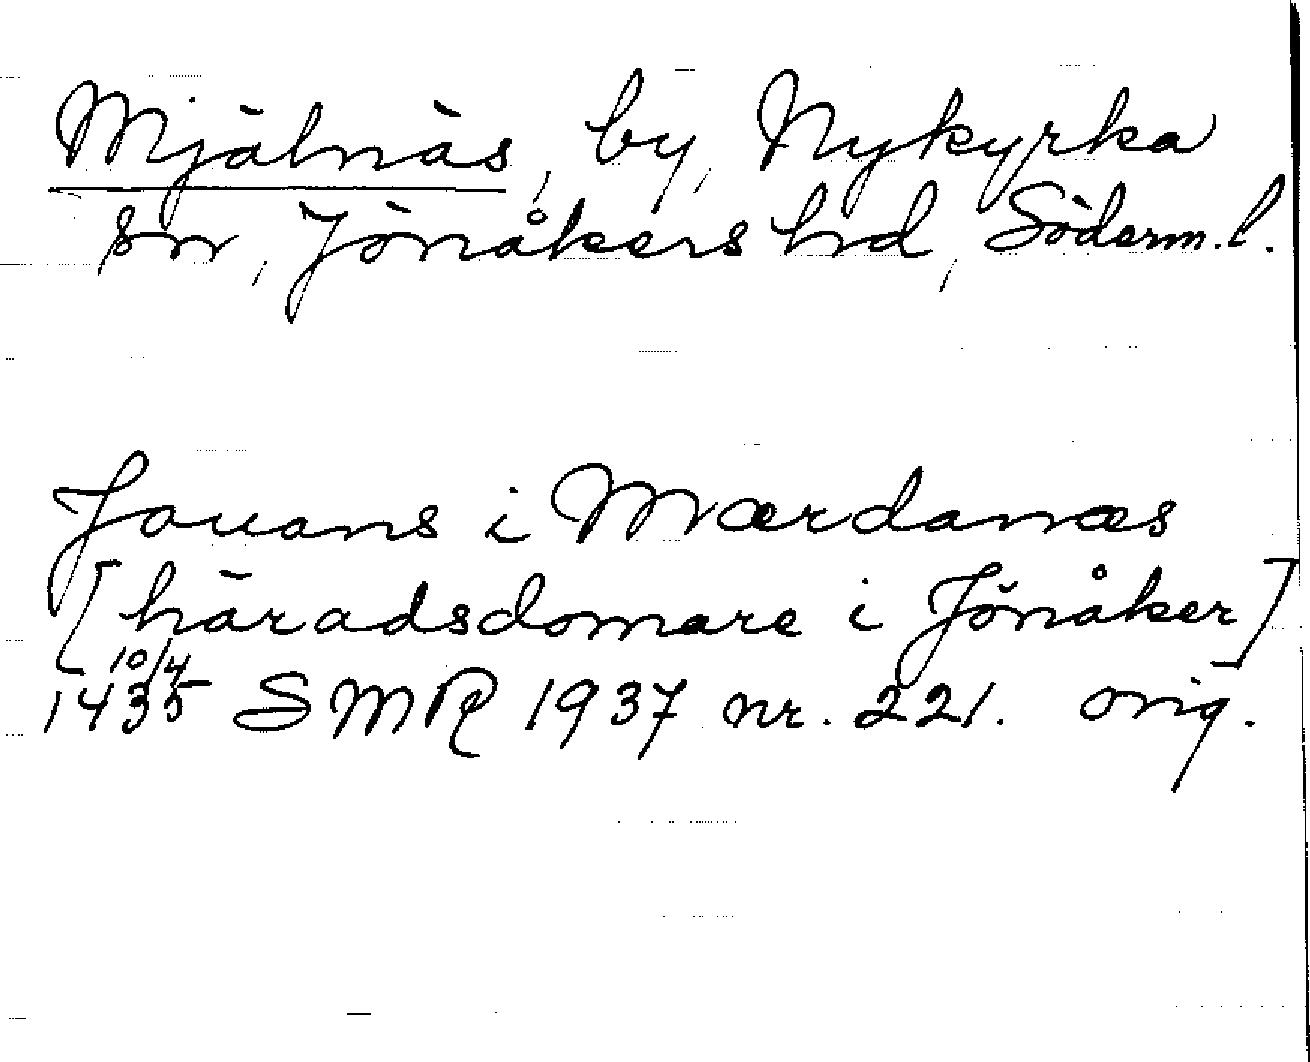 Mjälnäs, by, Nykyrka
sn, Jönåkers hd, Söderm. l.
Jouans i Mærdanæs
[häradsdomare i Jönåker]
10/4
1435 SMR 1937 nr. 221. orig.